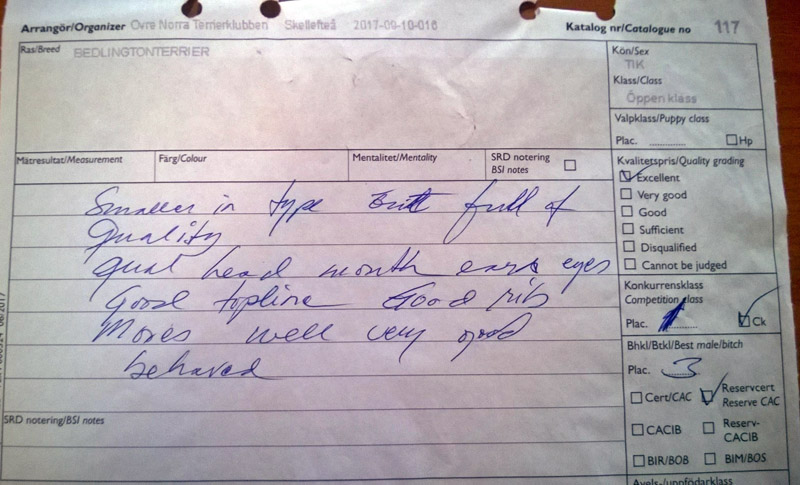 Arrangör/Organizer Övre Norra Terrierklubben Skellefteå 2017-09-10-016 Katalog nr/Catalogue no 117
Ras/Breed BEDLINGTONTERRIER
Kön/Sex
TIK
Klass/Class
Öppen klass
Valpklass/Puppy class
Plac. ............ Hp
Mätresultat/Measurement Färg/Colour Mentalitet/Mentality SRD notering
BSI notes
Kvalitetspris/Quality grading
Excellent
Very good
Good
Sufficient
Disqualified
Cannot be judged
Smaller in type But full of
Quality
head mouth ears eyes
Good topline Good rib
Moves well very good
behaved
Konkurrensklass
Competition class
Plac. 1 Ck
Bhkl/Btkl/Best male/bitch
Plac. 3
Cert/CAC Reservcert
Reserve CAC
CACIB Reserv-
CACIB
BIR/BOB BIM/BOS
SRD notering/BSI notes
Avels-/uppfödarklass